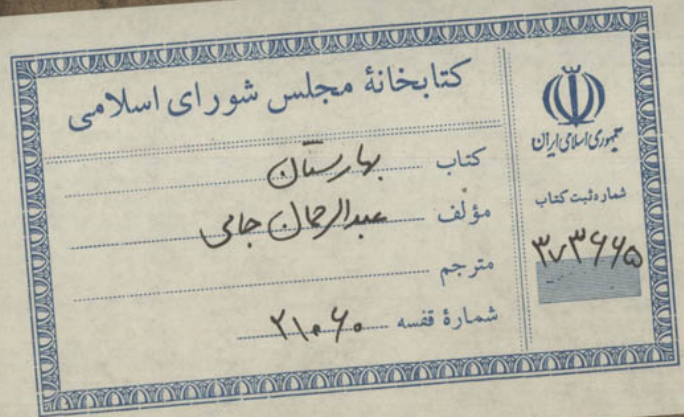 کتابخانهٔ مجلس شورای اسلامی
کتاب بهارستان
مؤلف عبدالرحمان جامی
مترجم
شمارهٔ قفسه ۲۱۰۶۰
جمهوری اسلامی ایران
شماره ثبت کتاب
۳۷۳۶۶۵